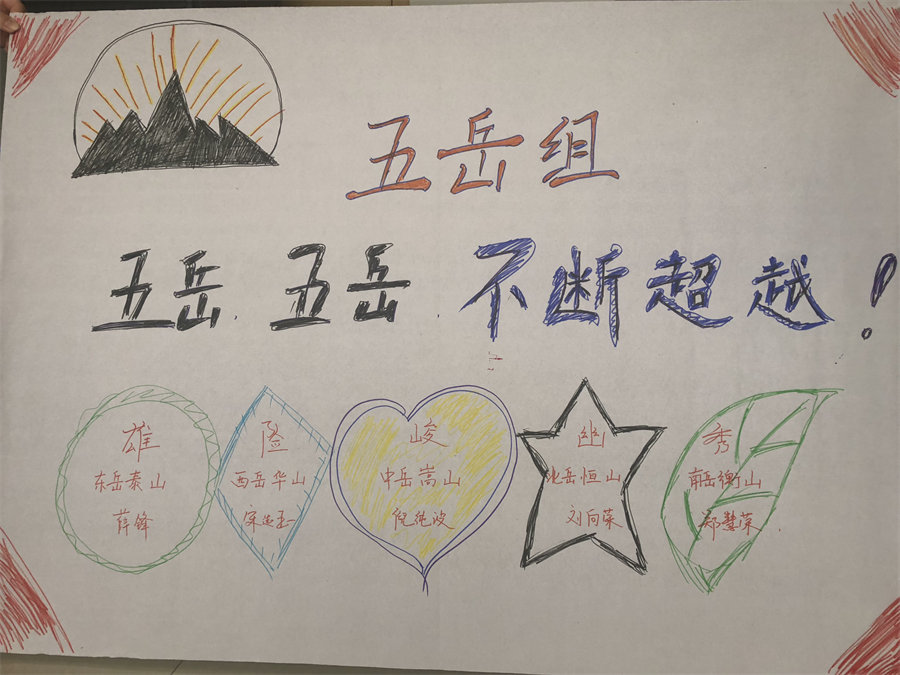 五岳组
五岳.五岳.不断超越!
雄 险 峻 幽 秀
东岳泰山 西岳华山 中岳嵩山 北岳恒山 南岳衡山
薛锋 倪纯波 刘向荣 郑慧荣